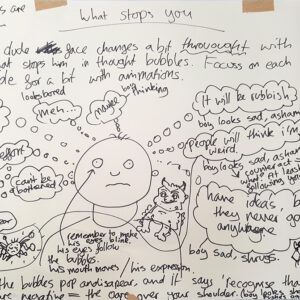 s are
what stops you
dude face changes a bit throughout with
what stops him in thought bubbles. Focus on each
de for a bit with animations.
looks bored
boy thinking
meh...
maybe
It will be rubbish
boy looks sad, asham
people will think i'm
weird.
effort
can't be
bothered
boy looks sad, asham
have ideas b
they never go
anywhere
boy sad, shrugs.
remember to make
his eyes blink.
his eyes follow
the bubbles.
his mouth moves / his expression.
the bubbles pop and disapear, and it says 'recognise th
negative = the
over your shoulder